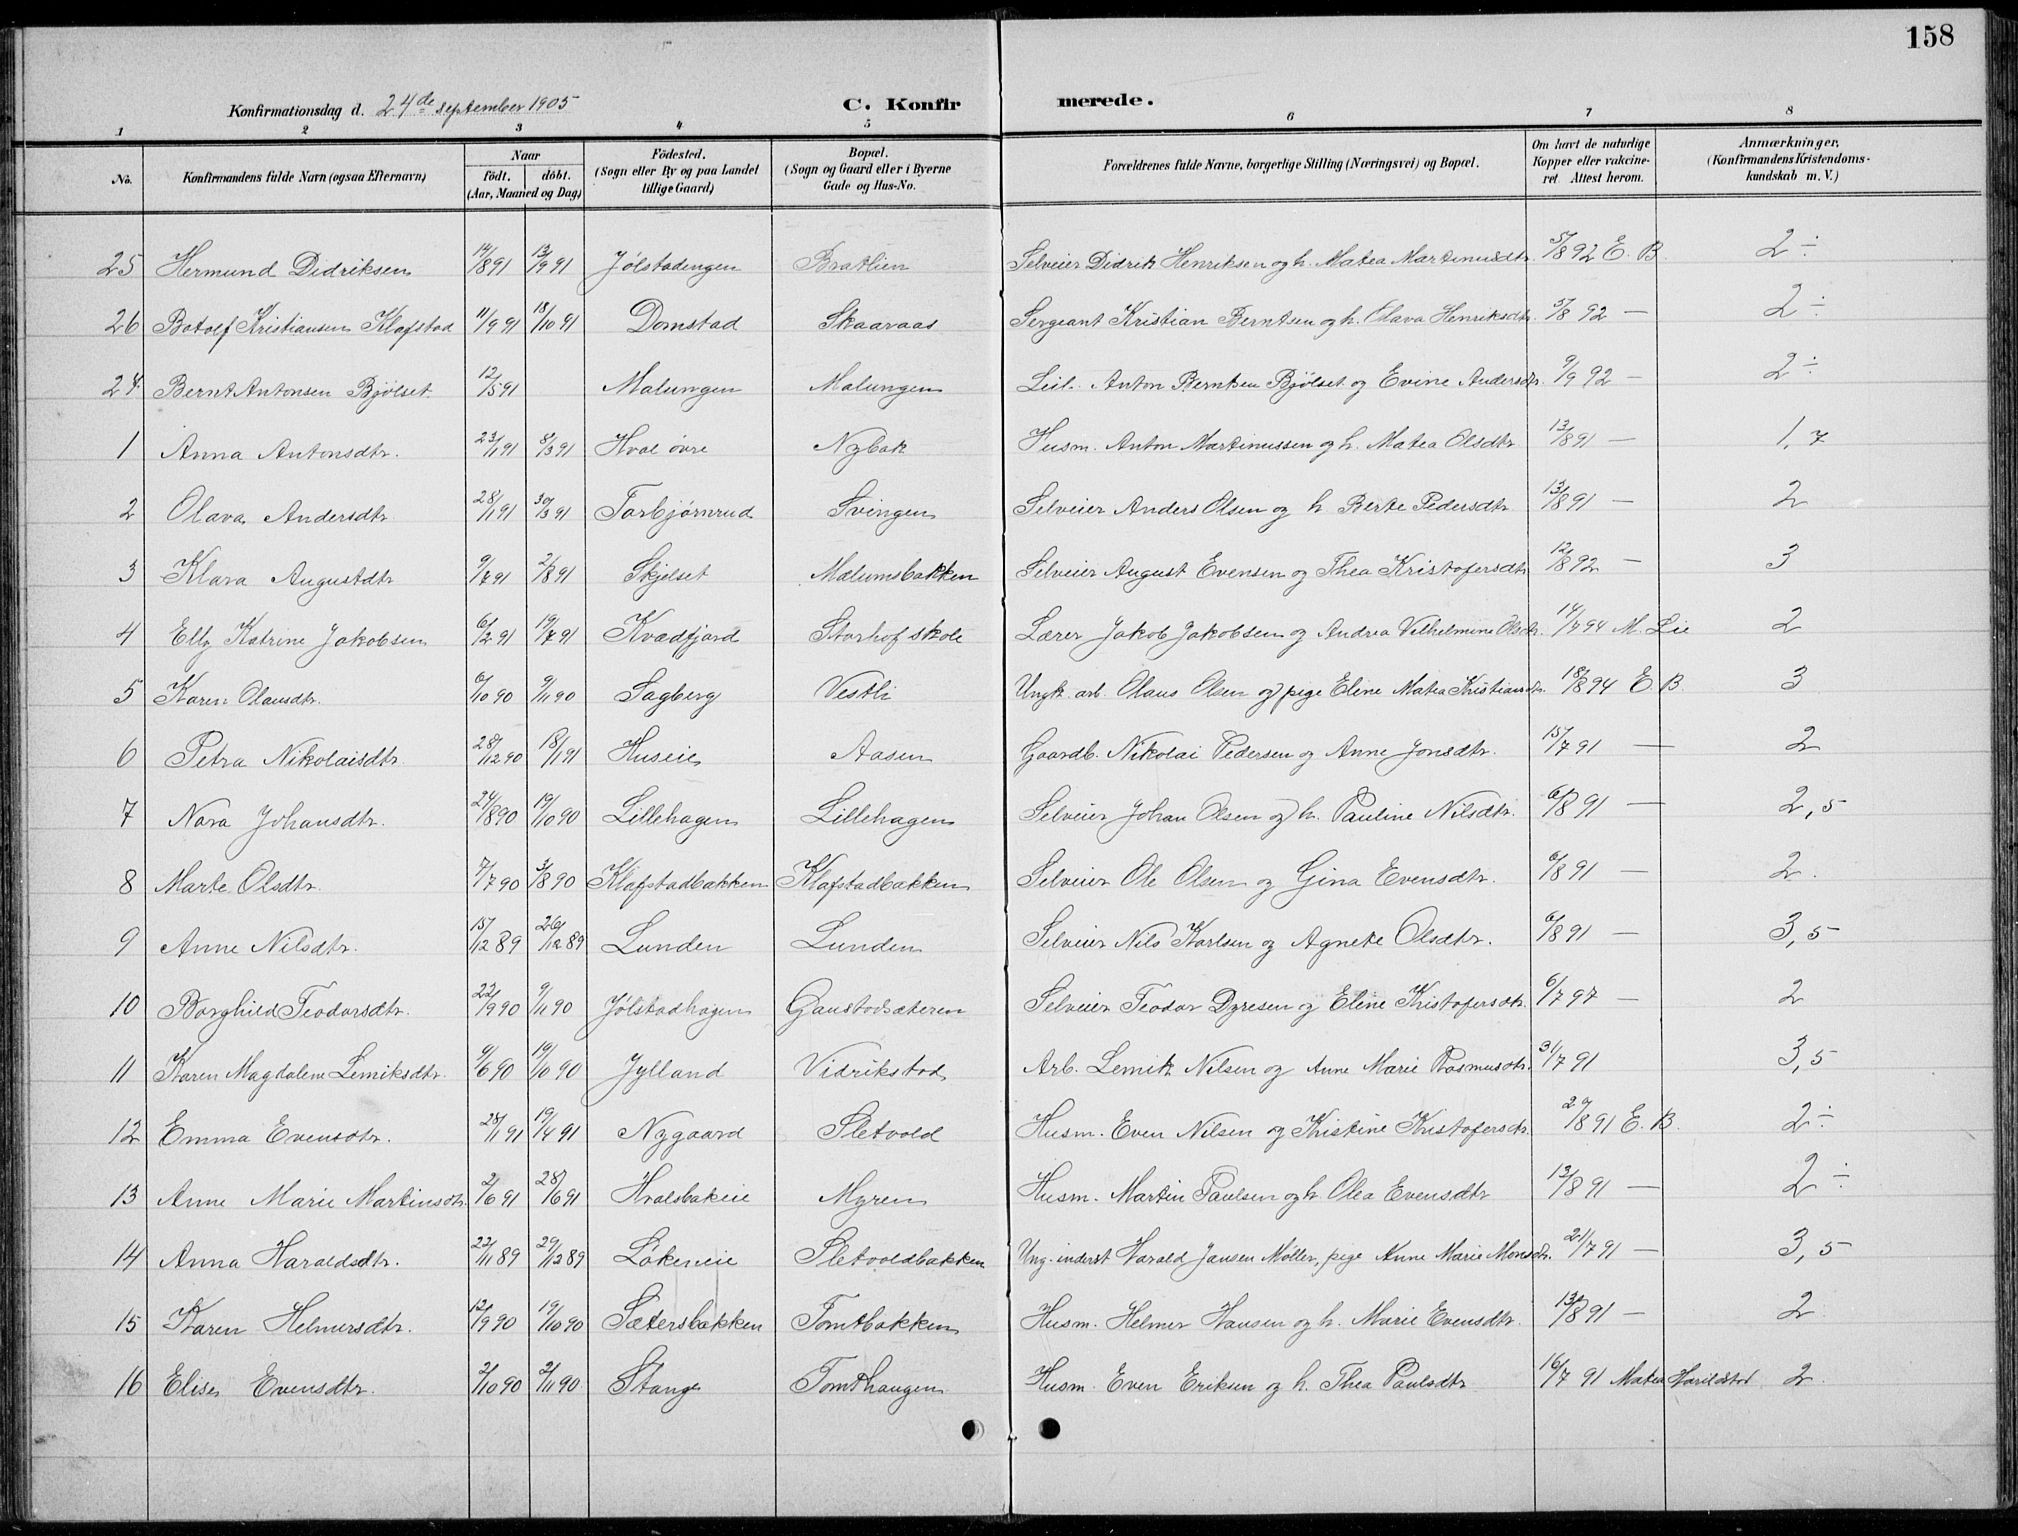 158
Konfirmationsdag d. 24de september 1905 C. Konfirmerede.
1 2 3 4 5 6 7 8
No. Konfirmandens fulde Navn (ogsaa Efternavn) Naar født. døbt. (Aar, Maaned og Dag) Fødested. (Sogn eller By og paa Landet tillige Gaard) Bopæl. (Sogn og Gaard eller i Byerne Gade og Hus-No. Forældrenes fulde Navne, borgerlige Stilling (Næringsvei) og Bopæl. Om havt de naturlige Kopper eller vakcineret. Attest herom. Anmærkninger. (Konfirmandens Kristendomskundskab m. V.)
25 Hermund Didriksen 14/8 91 13/9 91 Jølstadengen Bratlien Selveier Didrik Henriksen og h. Matea Martinusdtr. 5/8 92 E. B. 2÷
26 Botolf Kristiansen Klafstad 11/9 91 18/10 91 Domstad Skaaraas Sergeant Kristian Berntsen og h. Olava Henriksdtr. 5/8 92 — 2÷
24 Bernt Antonsen Bjølset 12/5 91 Malungen Malungen Leil. Anton Berntsen Bjølset og Evine Andersdtr. 9/9 92 — 2÷
1 Anna Antonsdtr. 23/1 91 8/3 91 Hval øvre Nybak Husm. Anton Martinussen og h. Matea Olsdtr 13/8 91 — 1,7
2 Olava Andersdtr 28/1 91 30/3 91 Torbjørnrud Svingen Selveier Anders Olsen og h Berte Pedersdtr 13/8 91 — 2
3 Klara Augustdtr 9/7 91 2/8 91 Skjelset Mælumsbakken Selveier August Evensen og Thea Kristofersdtr 12/8 92 — 3
4 Elly Katrine Jakobsen 6/2 91 19/7 91 Kvædfjord Storhof skole Lærer Jakob Jakobsen og Andrea Vilhelmine Olsdtr. 14/7 94 M. Lie 2
5 Karen Olausdtr. 6/10 90 9/11 90 Sagberg Vestli Ungk. arb. Olaus Olsen og pige Eline Matea Kristiansdtr. 18/8 94 E. B. 3
6 Petra Nikolaisdtr. 28/12 90 18/1 91 Huseie Aasen Gaardb. Nikolai Pedersen og Anne Jonsdtr. 15/7 91 — 2
7 Nora Johansdtr. 24/8 90 19/10 90 Lillehagen Lillehagen Selveier Johan Olsen og h. Pauline Nilsdtr. 6/8 91 — 2,5
8 Marte Olsdtr. 7/7 90 3/8 90 Klafstadbakken Klafstadbakken Selveier Ole Olsen og Gina Evensdtr. 6/8 91 — 2.
9 Anne Nilsdtr. 15/12 89 26/12 89 Lunden Lunden Selveier Nils Karlsen og Agnete Olsdtr. 6/8 91 — 3,5
10 Borghild Teodorsdtr. 22/9 90 9/11 90 Jølstadhagen Gaustadsæteren Selveier Teodor Dyresen og Eline Kristofersdtr. 6/7 97 — 2
11 Karen Magdalene Lemiksdtr. 9/6 90 19/10 90 Jylland Vidrikstad Arb. Lemik Nilsen og Anne Marie Rasmusdtr. 31/7 91 3,5
12 Emma Evensdtr. 28/1 91 19/4 91 Nygaard Sletvold Husm. Even Nilsen og Kristine Kristofersdtr. 29/8 91 E. B. 2÷
13 Anne Marie Martinsdtr. 2/6 91 28/6 91 Hvalsbakeie Myren Husm. Martin Paulsen og h Olea Evensdtr 13/8 91 — 2÷
14 Anna Haraldsdtr. 22/11 89 29/12 89 Løkeneie Sletvoldbakken Ung. inderst Harald Jansen Møller, pige Anne Marie Monsdtr. 21/7 91 — 3,5
15 Karen Helmersdtr. 12/9 90 19/10 90 Sætersbakken Tomtbakken Husm. Helmer Hansen og h. Marie Evensdtr. 13/8 91 — 2
16 Elise Evensdtr. 2/10 90 2/11 90 Stange Tomthaugen Husm. Even Eriksen og h. Thea Paulsdtr 16/7 91 Matea Harildstad 2.